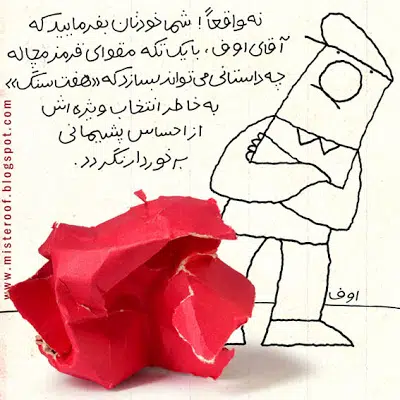 نه واقعاً! شما خودتان بفرمایید که
آقای اوف، با یک تکه مقوای قرمز مچاله
چه داستانی می‌تواند بسازد که «هفت‌سنگ»
به خاطر انتخاب ویژه‌اش
از احساس پشیمانی
برخوردار نگردد.
اوف
www.misteroof.blogspot.com